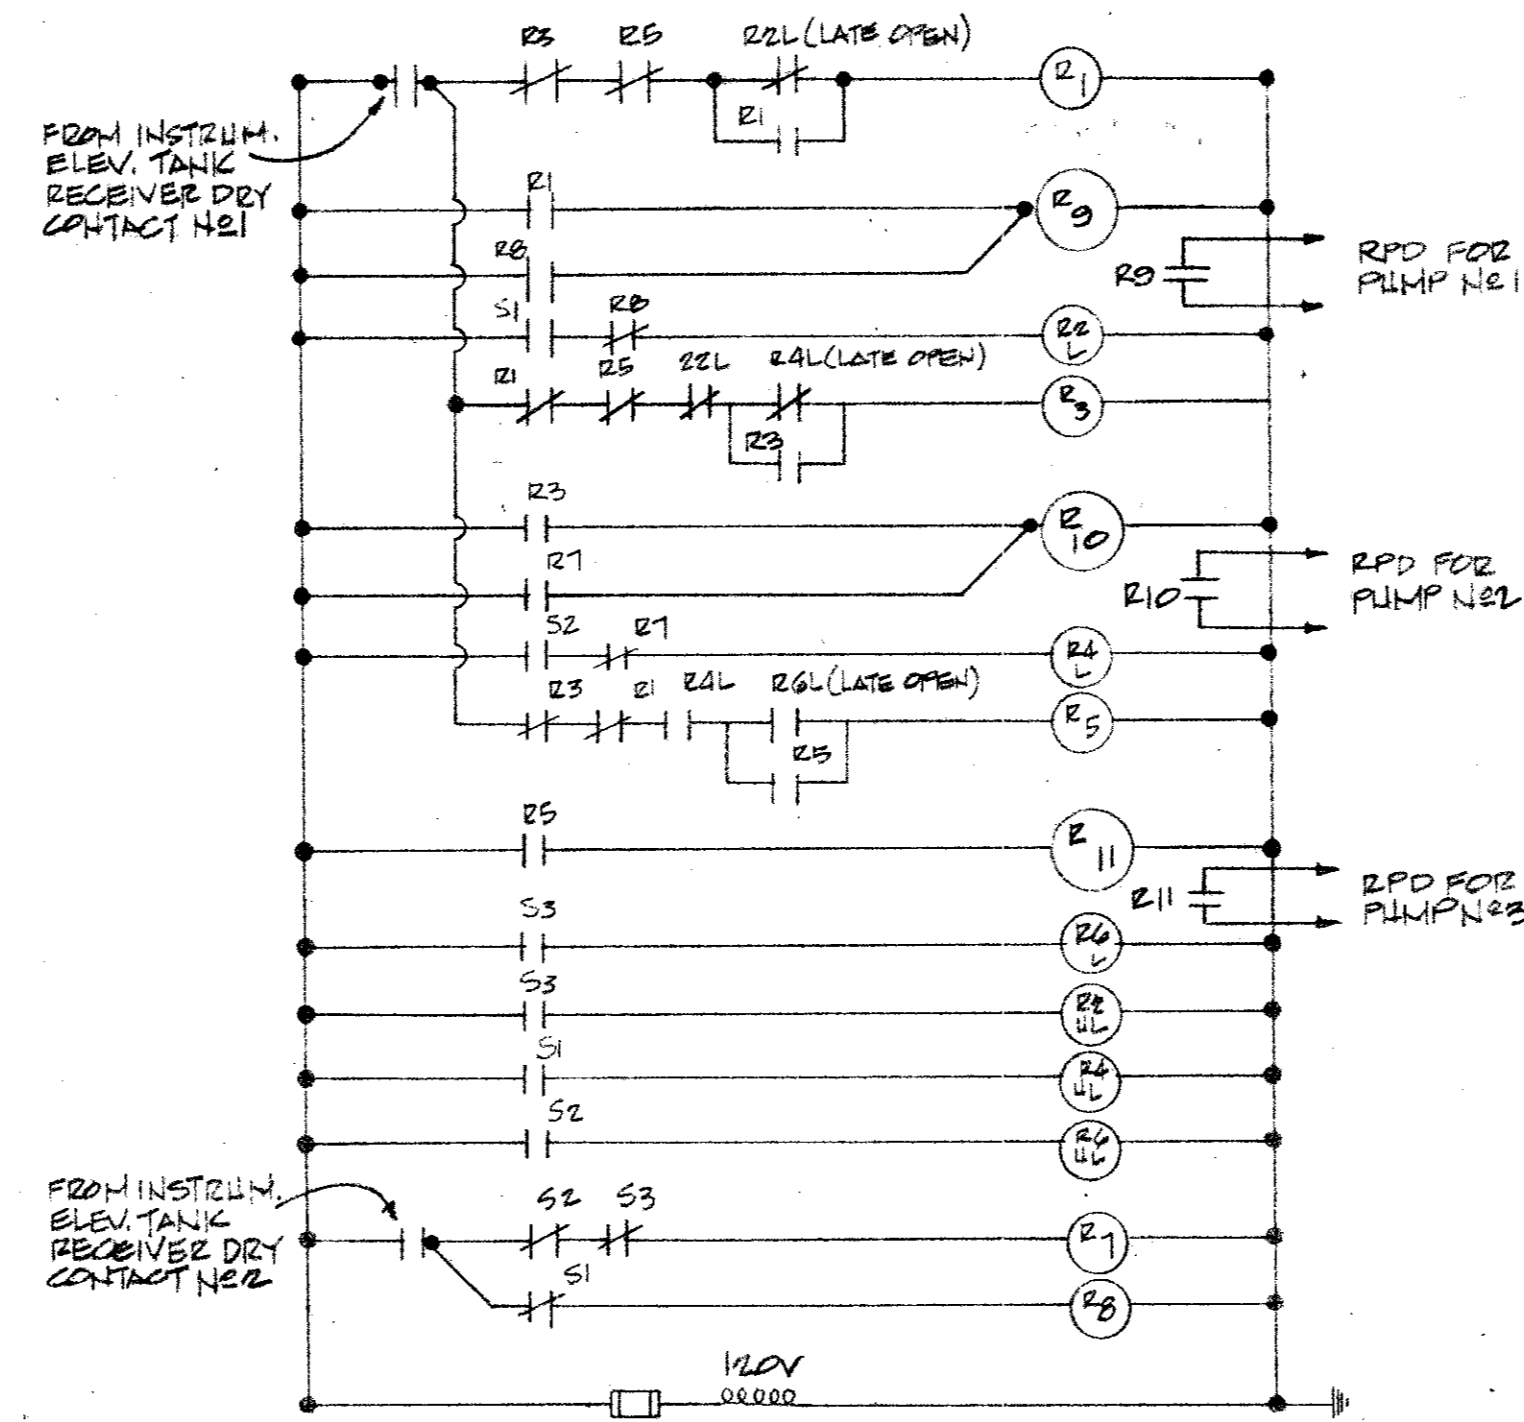 R3 R5 R2L (LATE OPEN)
R1
R1
FROM INSTRUM.
ELEV. TANK
RECEIVER DRY
CONTACT No1
R1
R9
R8
RPD FOR
PUMP No1
R9
S1 R8
R2
L
R1 R5 22L R4L (LATE OPEN)
R3
R3
R3
R10
R7
RPD FOR
PUMP No2
R10
S2 R7
R4
L
R3 R1 R4L R6L (LATE OPEN)
R5
R5
R5
R11
RPD FOR
PUMP No3
R11
S3
R6
L
S3
R2
UL
S1
R4
UL
S2
R6
UL
FROM INSTRUM.
ELEV. TANK
RECEIVER DRY
CONTACT No2
S2 S3
R7
S1
R8
120V